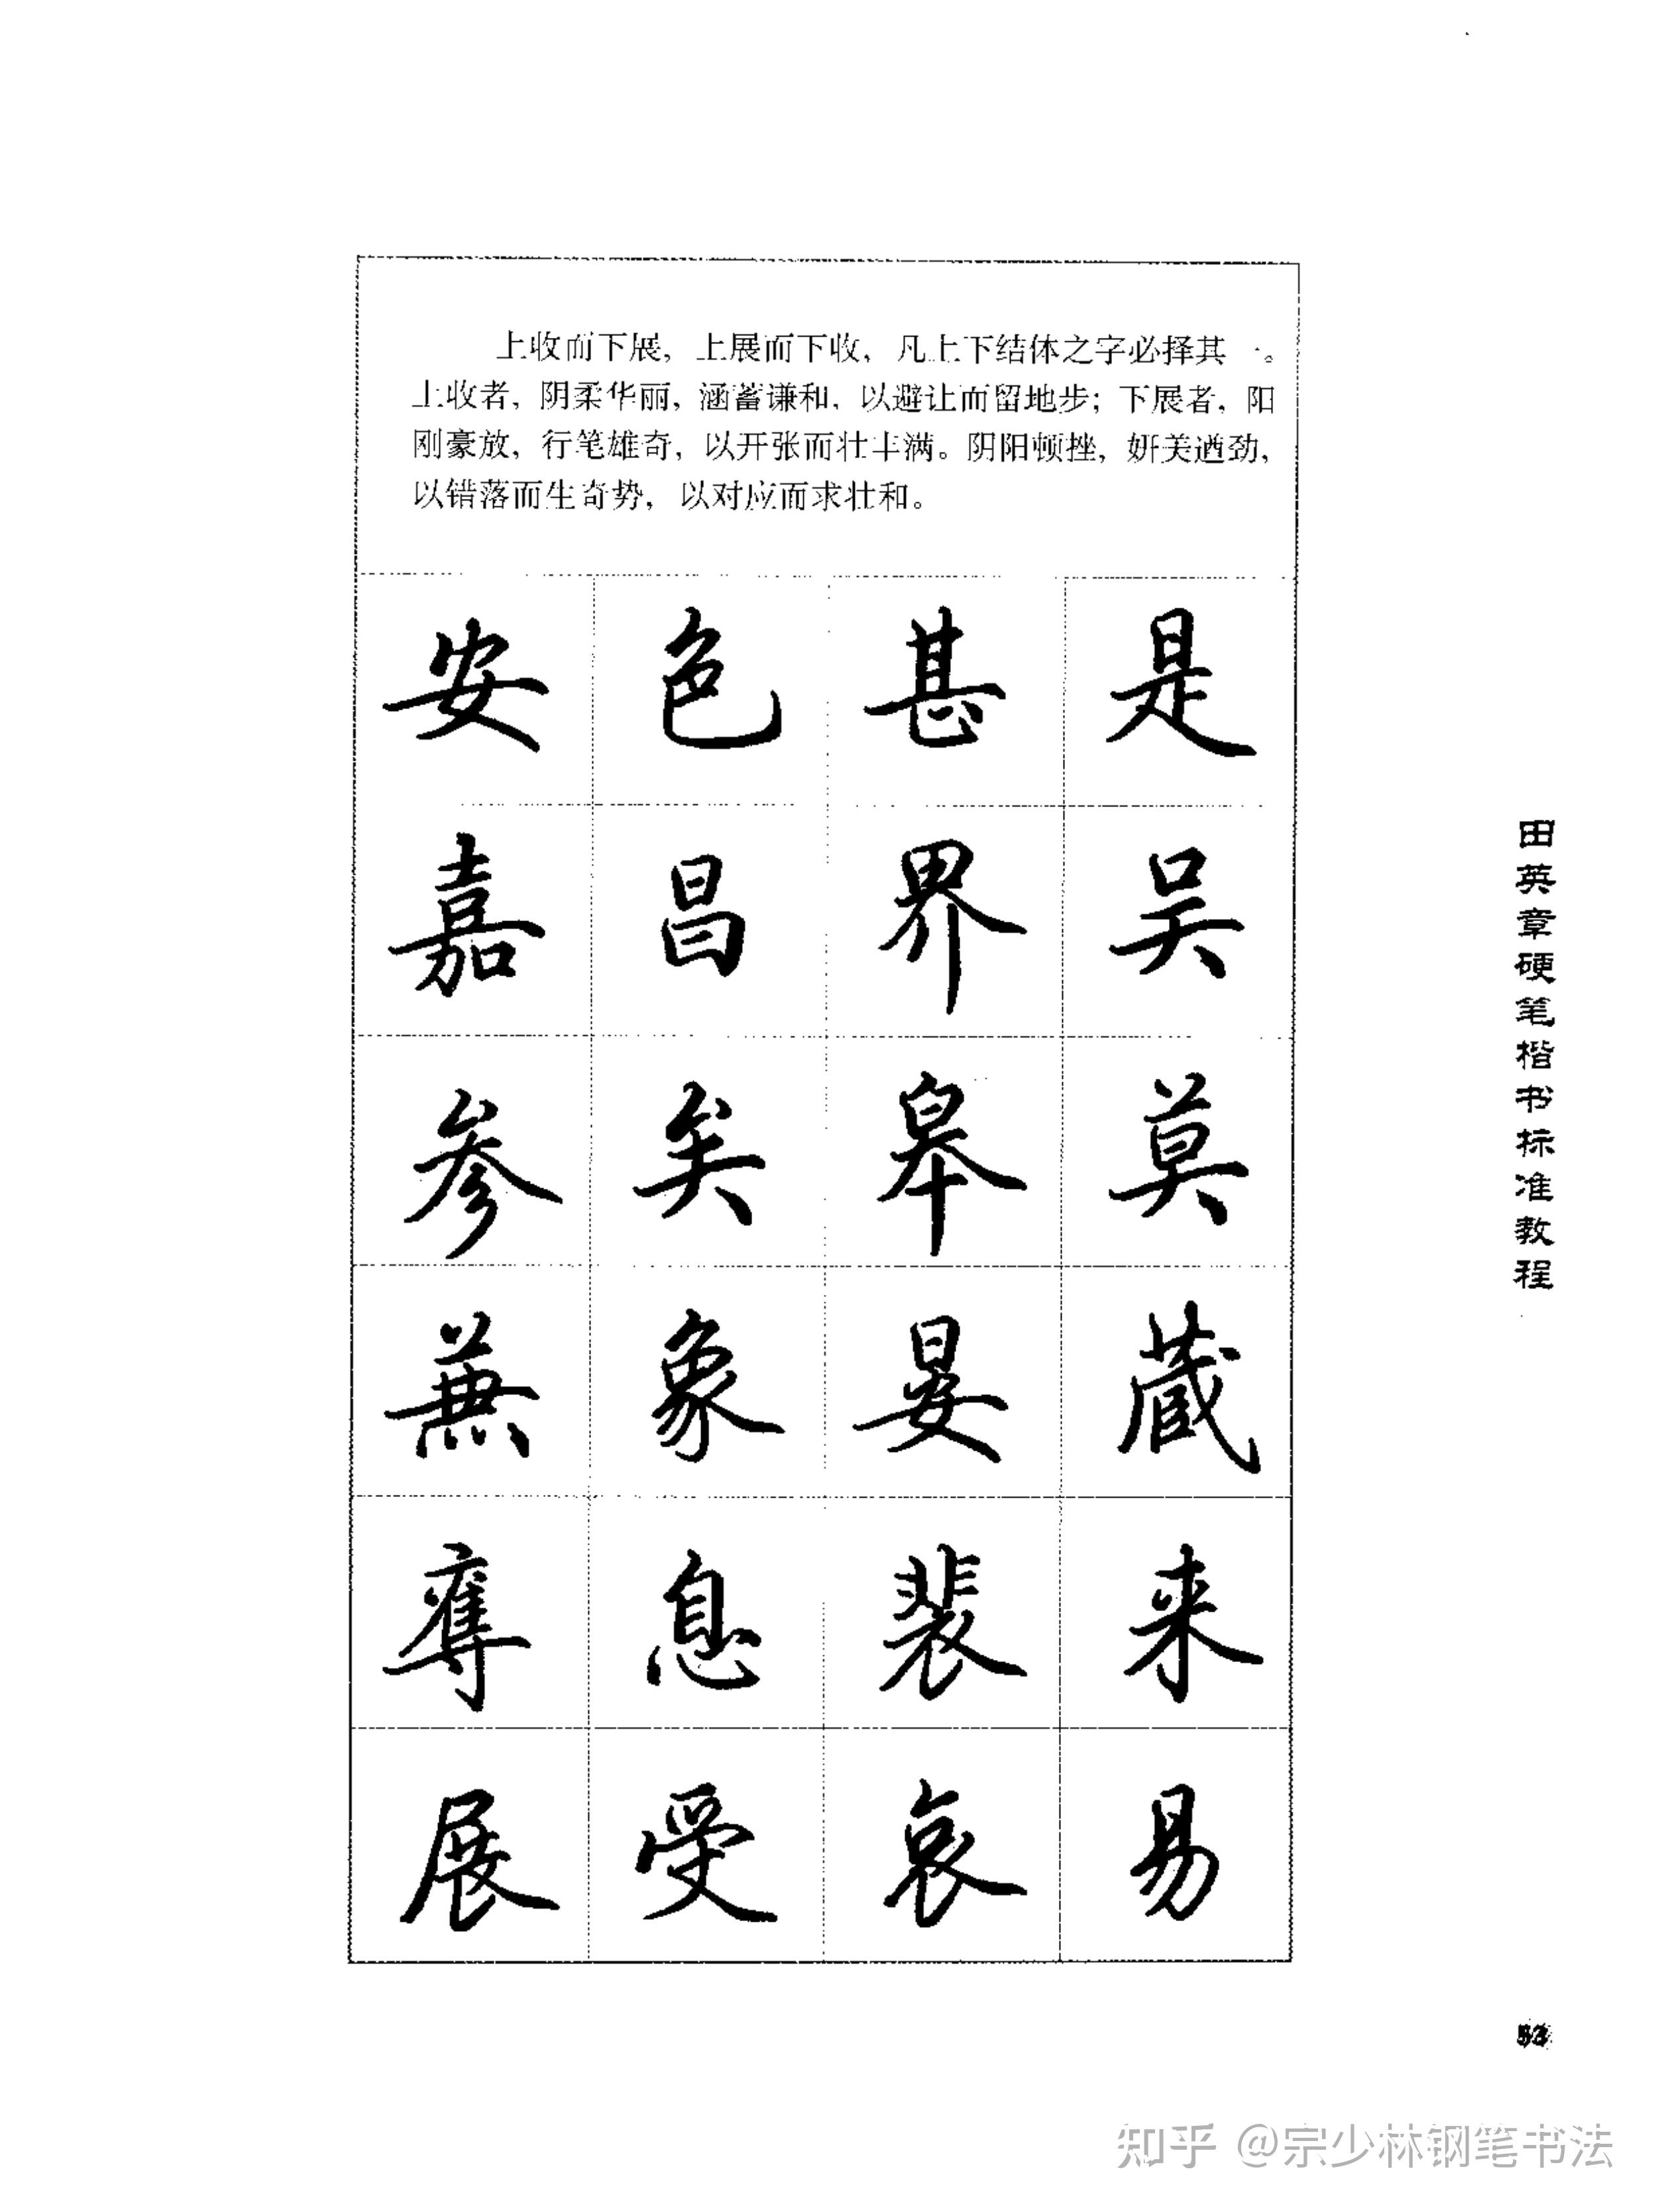 上收而下展，上展而下收，凡上下结体之字必择其一。
上收者，阴柔华丽，涵蓄谦和，以避让而留地步；下展者，阳
刚豪放，行笔雄奇，以开张而壮丰满。阴阳顿挫，妍美遒劲，
以错落而生奇势，以对应而求壮和。
安 色 甚 是
嘉 昌 界 吴
参 矣 皋 莫
兼 象 晏 蔵
奪 息 裴 来
展 受 哀 易
田英章硬笔楷书标准教程
53
知乎 @宗少林钢笔书法